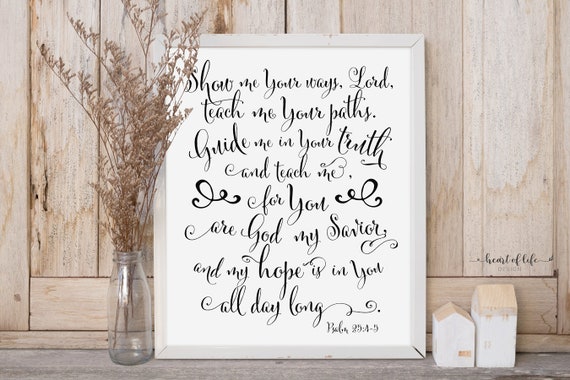 Show me Your ways, Lord,
teach me Your paths.
Guide me in Your truth
and teach me,
for You
are God my Savior,
and my hope is in You
all day long.
Psalm 29:4-9
heart of life
DESIGN